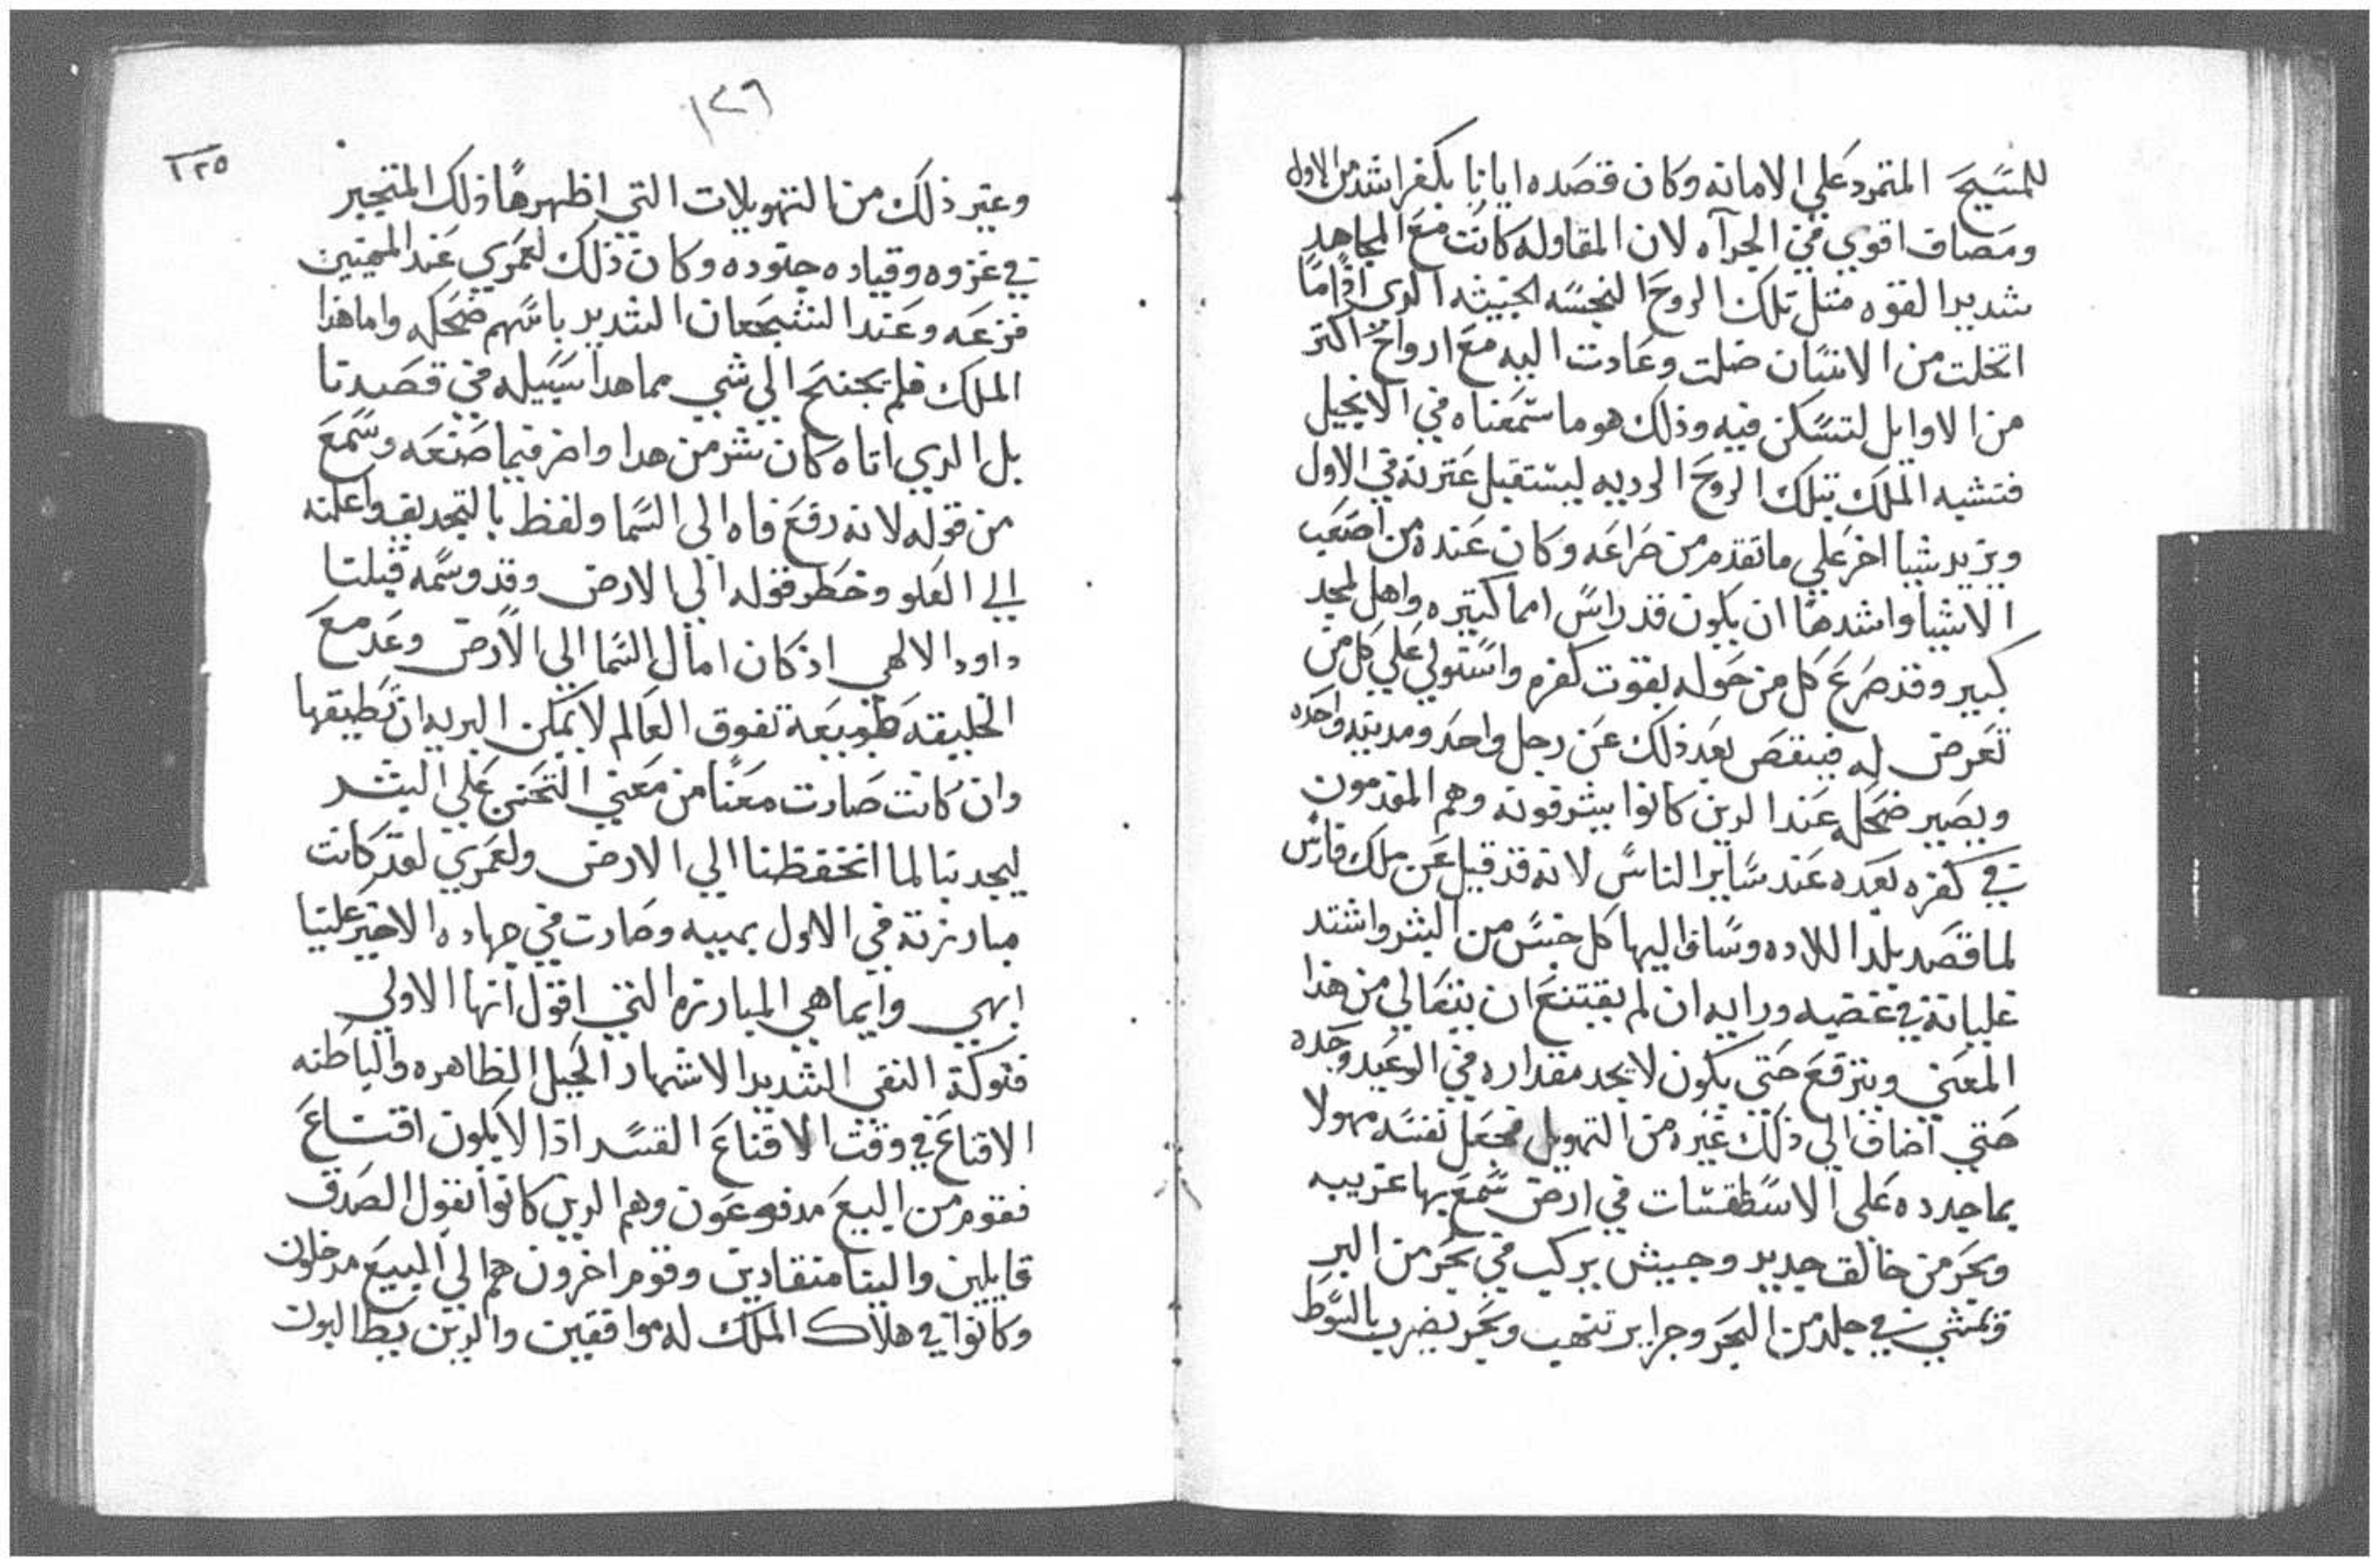 للمسيح المتمرد علي الامانه وكان قصده ايانا بكفر اشد من الاول
ومصاف اقوي في الجرآه لان المقاوله كانت مع المجاهد
شديد القوه مثل تلك الروح النجسه الخبيثه الدي اذا ما
انحلت من الانسان ضلت وعادت اليه مع ارواح اكتر
من الاوايل لتسكن فيه وذلك هو ما سمعناه في الانجيل
فتشبه الملك بتلك الروح الرديه ليستقيل عترته في الاول
ويزيد شيا اخر علي ما تقدم من صراعه وكان عنده من اصعب
الاشيا واشدها ان يكون قد راس امما كتيره واهل لمجد
كبير وقد صرع كل من حوله بقوت كفره واستولي علي كل من
تعرض له فينقص بعد ذلك عن رجل واحد ومدينه واحده
ويصير ضحكه عند الدين كانوا يشرفونه وهم المقدمون
في كفره بعده عند ساير الناس لانه قد قيل عن ملك فارس
لما قصد بلد اللاده وساق اليها كل جنس من البشر واشتد
غليانه في غضبه ورايه ان لم يقتنع ان يتعالي من هذا
المعني ويترفع حتي يكون لا يحد مقداره في الوعيد وحده
حتي اضاف الي ذلك غيره من التهويل فجعل نفسه مهولا
بما جدده علي الاسطقسات في ارض سمع بها غريبه
وبحر من خالق جديد وجيش يركب في بحر من البر
وتمشي في جلد من البحر وجراير تنتهب وبحر يضرب بالسوط
١٢٦
١٢٥
وغير ذلك من التهويلات التي اظهرها ذلك المتجبر
في غزوه وقياده جنوده وكان ذلك لعمري عند المهينين
فزعه وعند الشجعان الشديد باسهم ضحكه واما هذا
الملك فلم يجنح الي شي مما هدا سبيله في قصدنا
بل الدي اتاه كان شر من هدا واضر فيما صنعه وسمع
من قوله لانه رفع فاه الي السما ولفظ بالتجديف واعلنه
الي العلو وخطر قوله الي الارض وقد وسمه قبلنا
داود الالهي اذ كان امال السما الي الارض وعد مع
الخليقه طبيعة تفوق العالم لا يمكن البريه ان تطيقها
وان كانت صارت معنا من معني التحنن علي البشر
ليجدبنا لما انخفظنا الي الارض ولعمري لقد كانت
مبارزته في الاول بهيه وصارت في جهاده الاخير علينا
ابهي وايما هي المبارزه التي اقول انها الاولي
فتوكة النفي الشديد الاشهار الحيل الظاهره والباطنه
الاقناع في وقت الاقناع القسد اذا لا يكون اقناع
فقوم من البيع مدفوعون وهم الدين كانوا بقول الصدق
قايلين والينا منقادين وقوم اخرون هم الي البيع مدخلون
وكانوا في هلاك الملك له موافقين والدين يطالبون